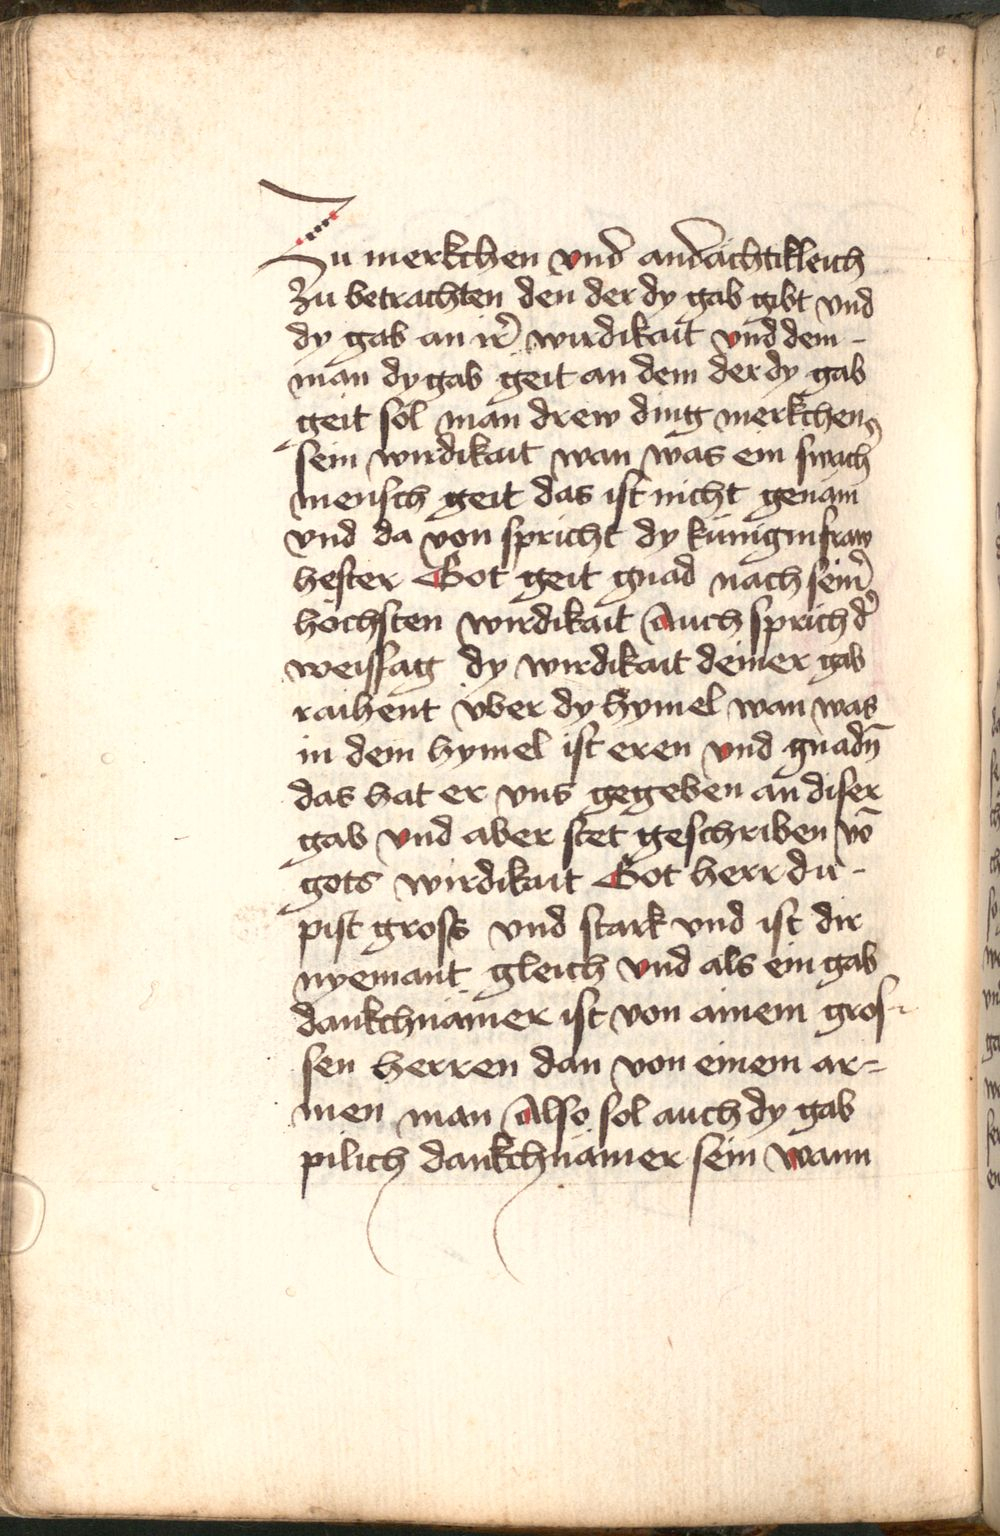 Zu merkchen vnd andächtikleich
Zu betrachten den der dy gab gibt vnd
dy gab an ir̄ wirdikait vnd dem -
man dy gab geit an dem der dy gab
geit sol man drew ding merkchen
sein wirdikait wan was ein swach
mensch geit das ist nicht genäm
vnd da von spricht dy künigin fraw
hester Got geit gnad nach sein̄
höchsten wirdikait Auch sprich d̄
weissag dy wirdikait deiner gab
raihent vber dy hymel wan was
in dem hymel ist eren vnd gnadn̄
das hat er vns gegeben an diser
gab vnd aber stet geschriben vō
gots wirdikait Got herr du -
pist gross vnd stark vnd ist dir
nyemant gleich vnd als ein gab
dankchnämer ist von ainem gros-
sen herren dan von einem ar=
men man Also sol auch dy gab
pilich dankchnämer sein wann